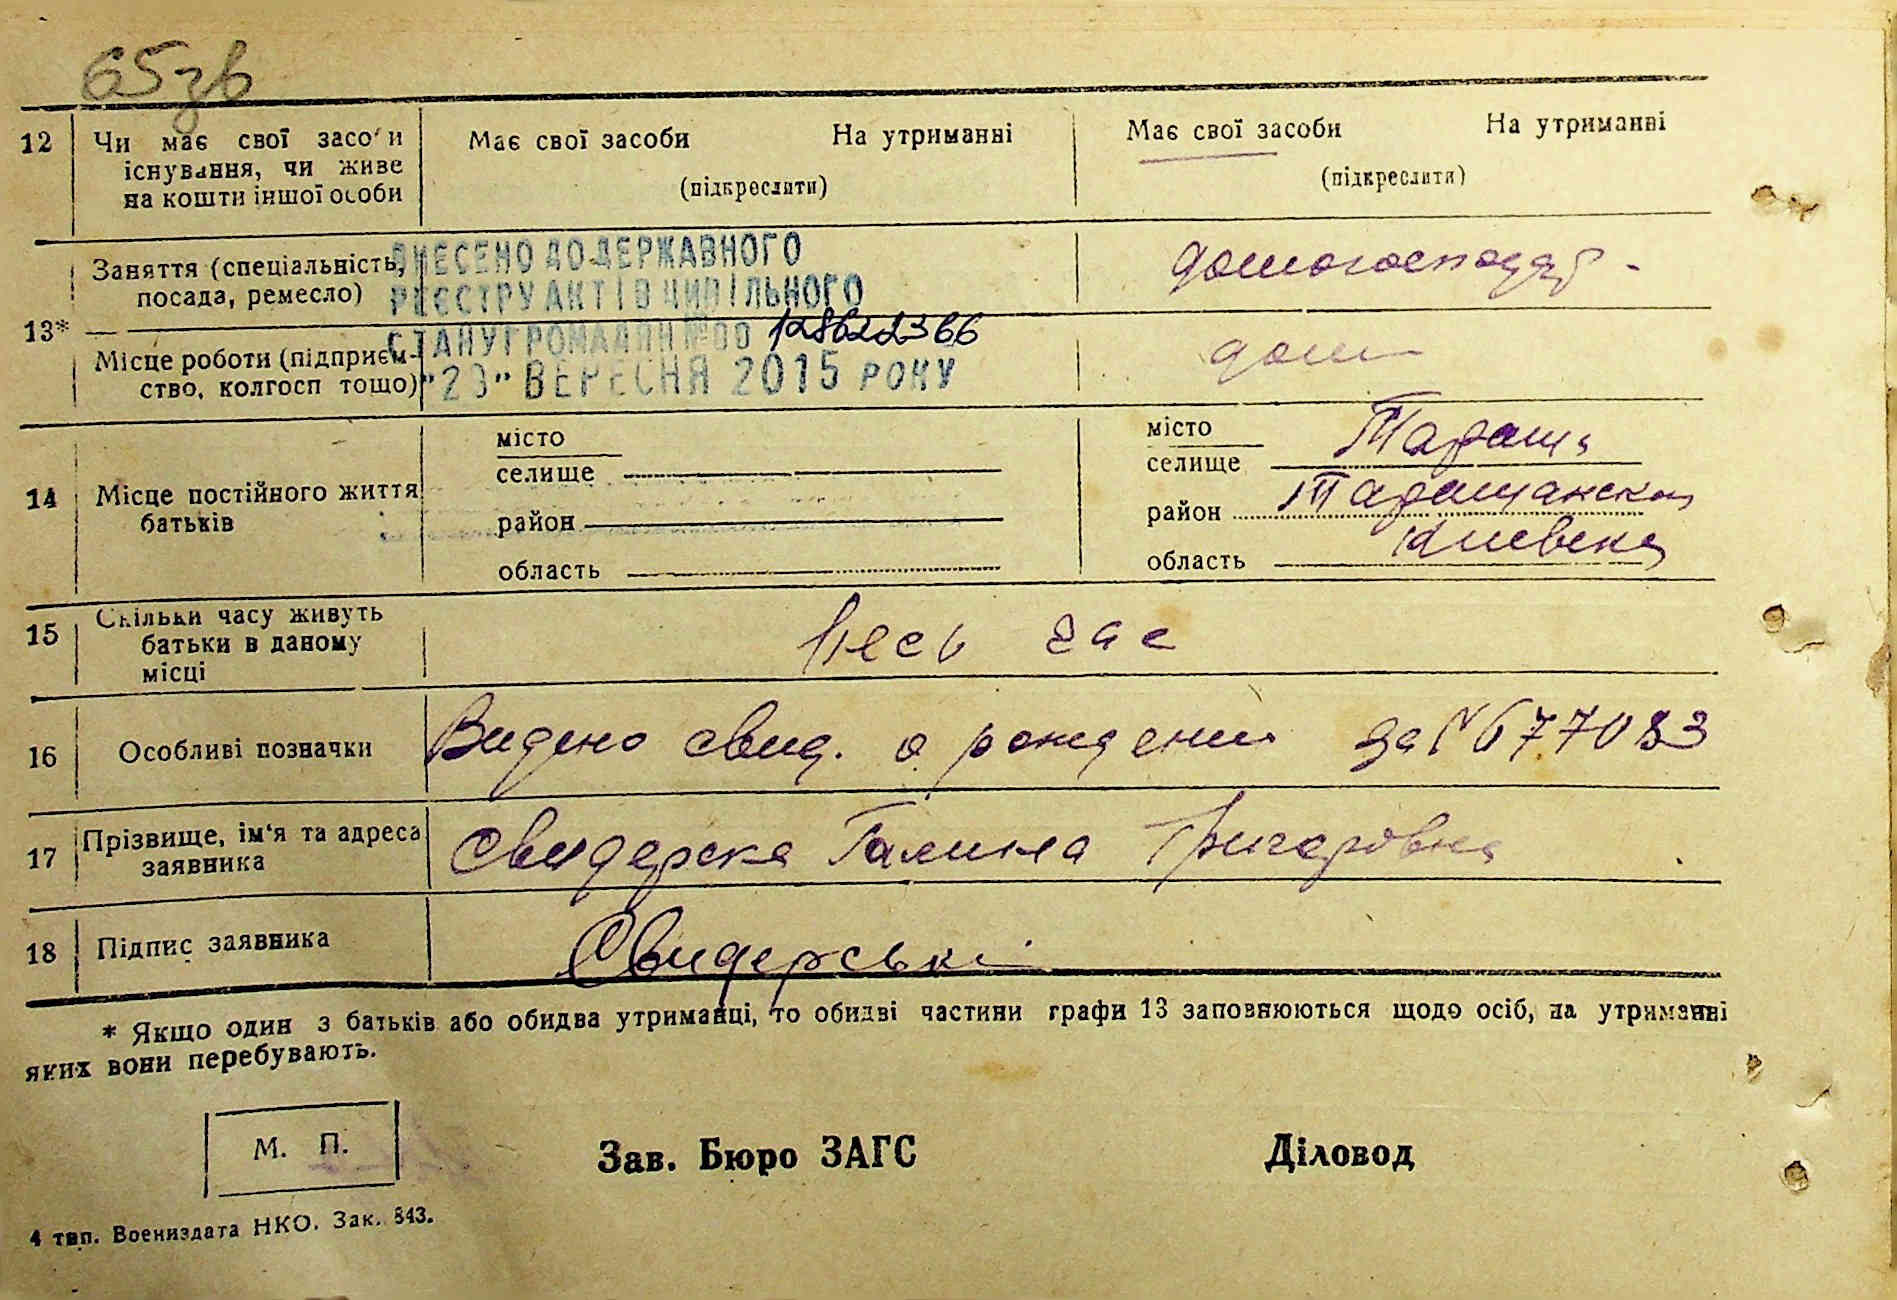 65зв
12 Чи має свої засоби Має свої засоби На утриманні Має свої засоби На утриманні
існування, чи живе (підкреслити) (підкреслити)
на кошти іншої особи
ВНЕСЕНО ДО ДЕРЖАВНОГО
РЕЄСТРУ АКТІВ ЦИВІЛЬНОГО
СТАНУ ГРОМАДЯН №00 128622366
"23" ВЕРЕСНЯ 2015 РОКУ
13* Заняття (спеціальність,
посада, ремесло)
Місце роботи (підприєм- дом
ство, колгосп тощо)
14 Місце постійного життя
батьків
місто
селище
район
область
місто Тараща
селище
район Таращанский
область Киевска
15 Скільки часу живуть
батьки в даному Весь час
місці
16 Особливі позначки Видено свид. о рождении за №677083
17 Прізвище, ім‘я та адреса Свидерска Галина Григоровна
заявника
18 Підпис заявника Свидерські
* Якщо один з батьків або обидва утриманці, то обидві частини графи 13 заповнюються щодо осіб, на утриманні
яких вони перебувають.
М. П. Зав. Бюро ЗАГС Діловод
4 тип. Воениздата НКО. Зак. 843.